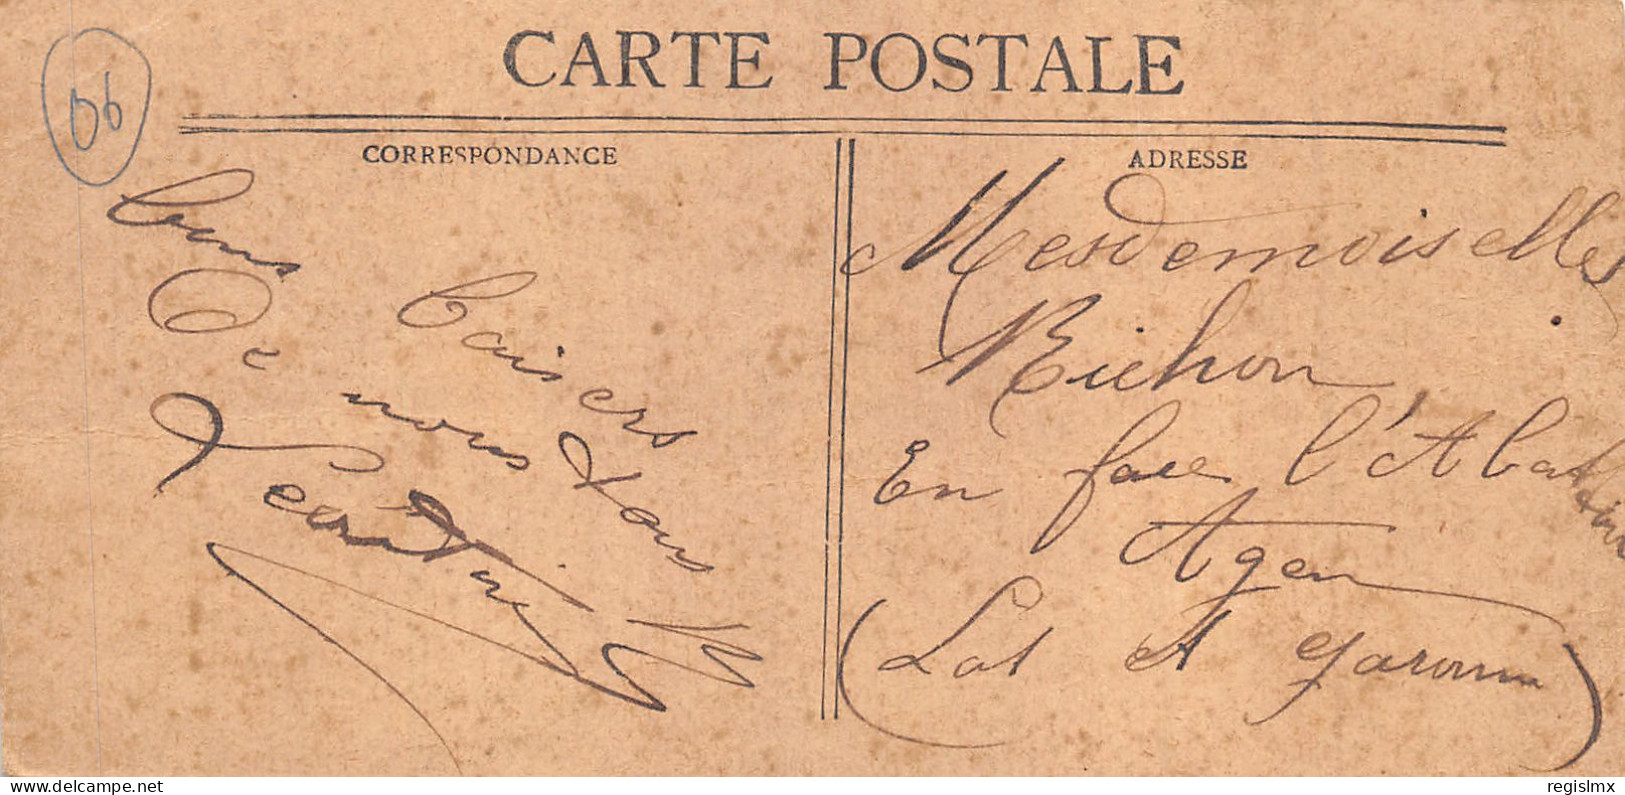 06
CARTE POSTALE
CORRESPONDANCE
ADRESSE
bons baisers
De nous tous
Mesdemoiselles
Richon
En face l'Abattoir
Agen
(Lot et Garonne)
regislmx